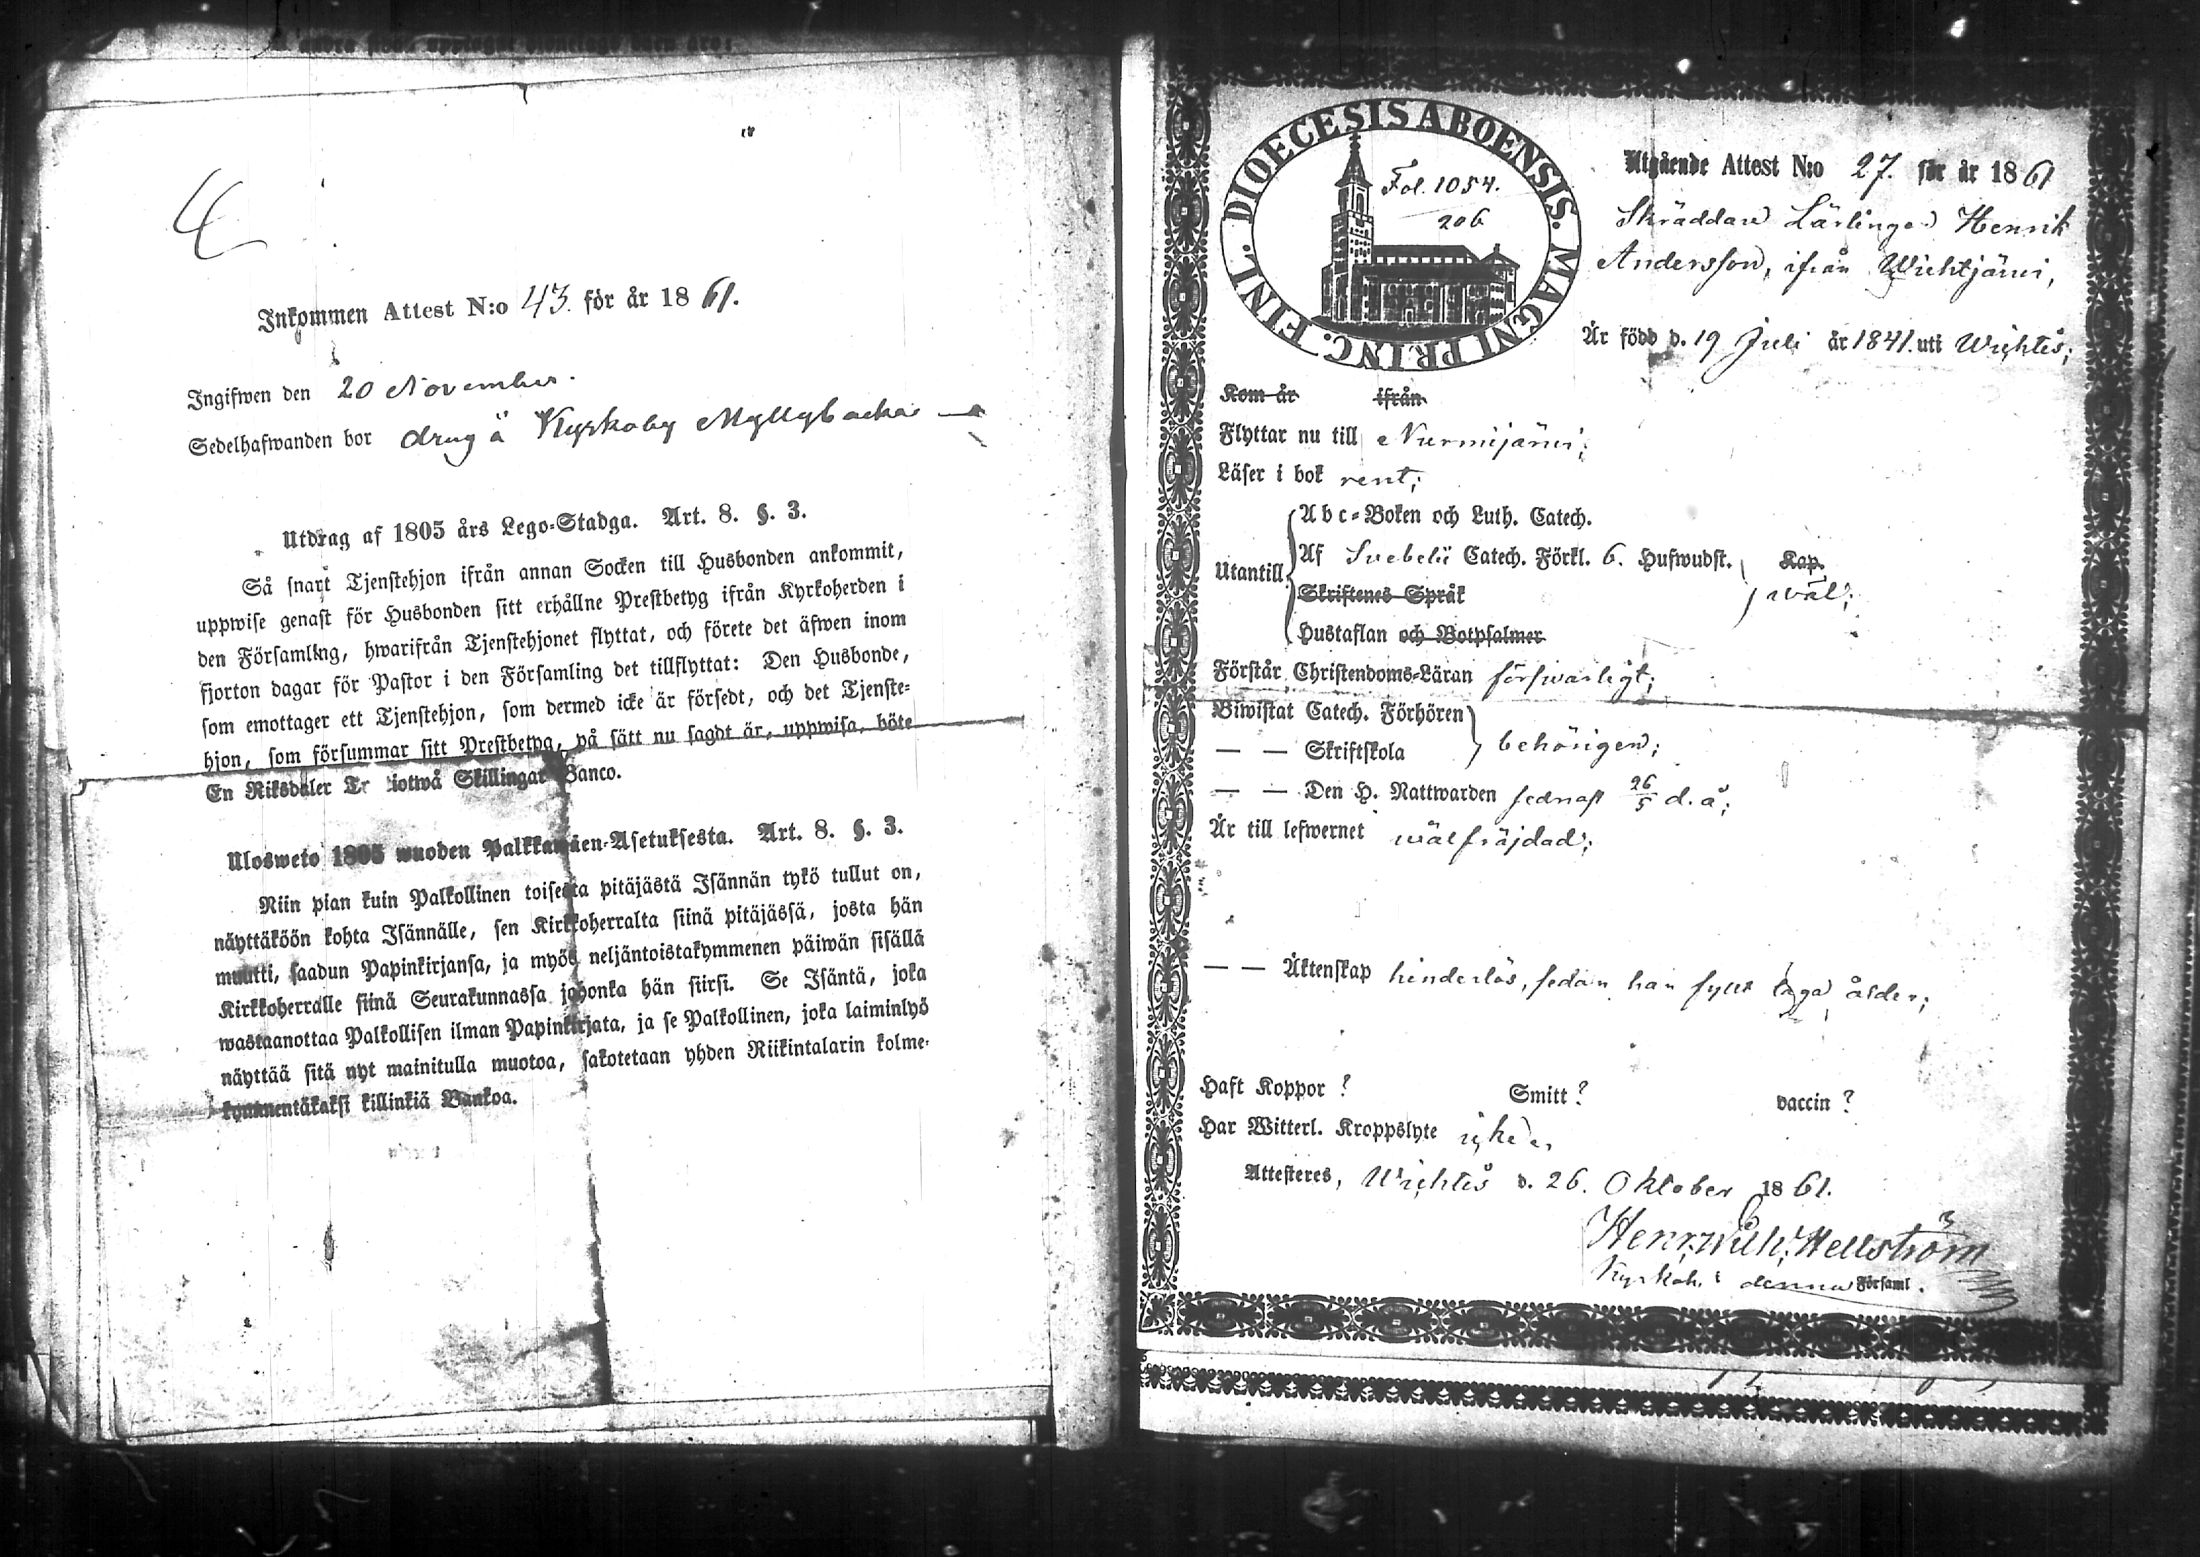 Inkommen Attest N:o 43. för år 1861.
Ingifwen den 20 November.
Sedelhafwanden bor dräng å Kyrkoby Myllybacka
Utdrag af 1805 års Lego-Stadga. Art. 8. §. 3.
Så snart Tjenstehjon ifrån annan Socken till Husbonden ankommit,
uppwise genast för Husbonden sitt erhållne Prestbetyg ifrån Kyrkoherden i
den Församling, hwarifrån Tjenstehjonet flyttat, och förete det äfwen inom
fjorton dagar för Pastor i den Församling det tillflyttat: Den Husbonde,
som emottager ett Tjenstehjon, som dermed icke är försedt, och det Tjenste-
hjon, som försummar sitt Prestbetyg, på sätt nu sagdt är, uppwisa, böte
En Riksdaler Tretiotwå Skillingar Banco.
Ulosweto 1805 wuoden Palkkawäen-Asetuksesta. Art. 8. §. 3.
Niin pian kuin Palkollinen toisesta pitäjästä Isännän tykö tullut on,
näyttäköön kohta Isännälle, sen Kirkkoherralta siinä pitäjässä, josta hän
muutti, saadun Papinkirjansa, ja myös neljäntoistakymmenen päiwän sisällä
Kirkkoherralle siinä Seurakunnassa johonka hän siirsi. Se Isäntä, joka
wastaanottaa Palkollisen ilman Papinkirjata, ja se Palkollinen, joka laiminlyö
näyttää sitä nyt mainitulla muotoa, sakotetaan yhden Riikintalarin kolme-
kymmentäkaksi killinkiä Bankoa.
DIOECESIS ABOENSIS. MAGNI PRINC. FINL.
Fol. 1054.
206
Utgående Attest N:o 27. för år 1861
Skräddare Lärlingen Henrik
Andersson, ifrån Wichtjärvi,
Är född d. 19 Juli år 1841. uti Wichtis;
Kom år ifrån
Flyttar nu till Nurmijärvi;
Läser i bok rent;
Utantill
Abc-Boken och Luth. Catech.
Af Svebelii Catech. Förkl. 6. Hufwudst. Kap.
Skriftenes Språk wäl;
Hustaflan och Botpsalmer
Förstår Christendoms-Läran förswarligt;
Biwistat Catech. Förhören
— — Skriftskola behörigen;
— — Den H. Nattwarden sednast 26/5 d. å;
Är till lefwernet wälfräjdad;
— — Äktenskap hinderlös, sedan han fyllt laga ålder;
Haft Koppor ? Smitt ? vaccin ?
Har Witterl. Kroppslyte icke.
Attesteres, Wichtis d. 26. Oktober 1861.
Henr. Wilh. Hellström
Kyrkoh. i denna Församl.